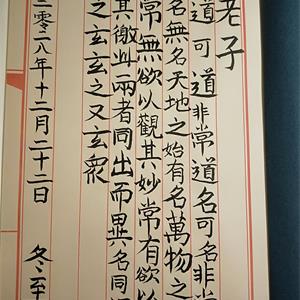 老子
道可道非常道名可名非
名無名天地之始有名萬物之
常無欲以觀其妙常有欲以
其徼此兩者同出而異名同
之玄玄之又玄衆
二零二八年十二月二十二日 冬至